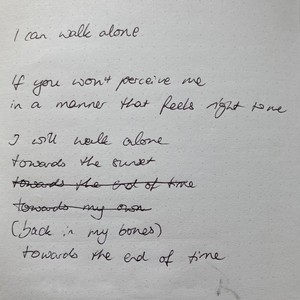 I can walk alone
If you won't perceive me
in a manner that feels right to me
I will walk alone
towards the sunset
towards the end of time
towards my own
(back in my bones)
towards the end of time